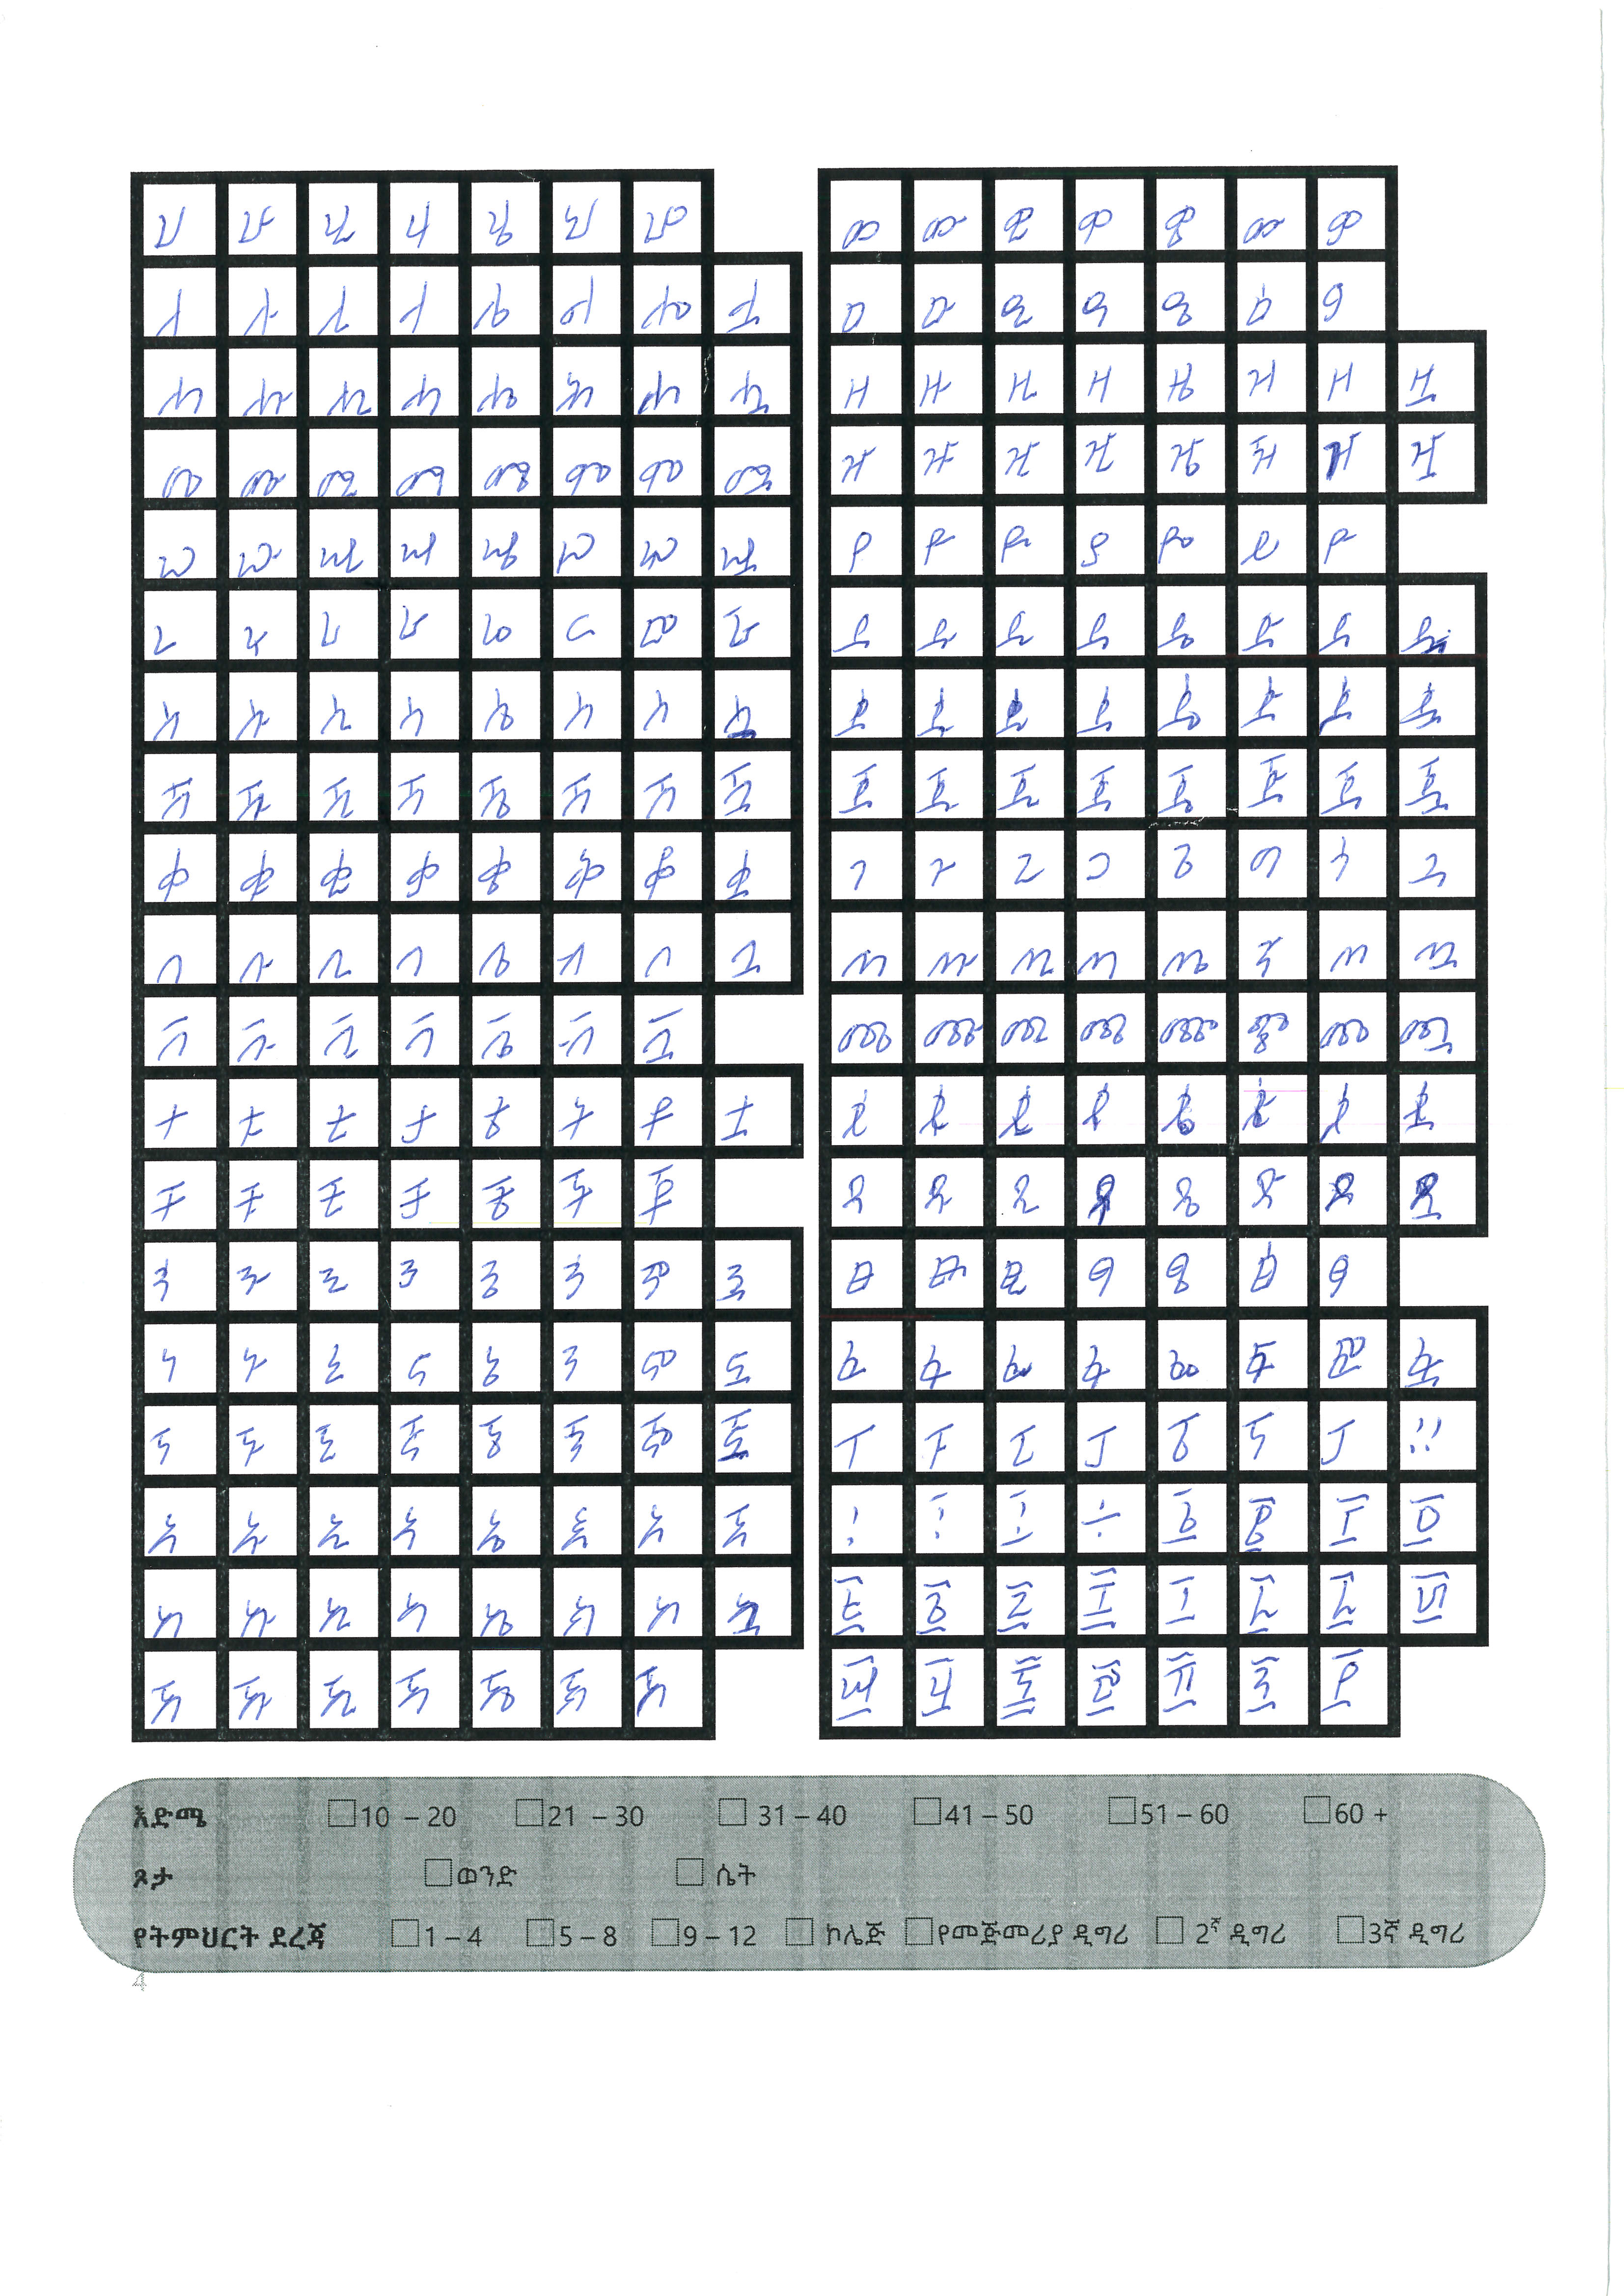 ሀ ሁ ሂ ሃ ሄ ህ ሆ
ለ ሉ ሊ ላ ሌ ል ሎ ሏ
ሐ ሑ ሒ ሓ ሔ ሕ ሖ ሗ
መ ሙ ሚ ማ ሜ ም ሞ ሟ
ሠ ሡ ሢ ሣ ሤ ሥ ሦ ሧ
ረ ሩ ሪ ራ ሬ ር ሮ ሯ
ሰ ሱ ሲ ሳ ሴ ስ ሶ ሷ
ሸ ሹ ሺ ሻ ሼ ሽ ሾ ሿ
ቀ ቁ ቂ ቃ ቄ ቅ ቆ ቋ
በ ቡ ቢ ባ ቤ ብ ቦ ቧ
ቨ ቩ ቪ ቫ ቬ ቭ ቮ
ተ ቱ ቲ ታ ቴ ት ቶ ቷ
ቸ ቹ ቺ ቻ ቼ ች ቾ
ኀ ኁ ኂ ኃ ኄ ኅ ኆ ኋ
ነ ኑ ኒ ና ኔ ን ኖ ኗ
ኘ ኙ ኚ ኛ ኜ ኝ ኞ ኟ
አ ኡ ኢ ኣ ኤ እ ኦ ኧ
ከ ኩ ኪ ካ ኬ ክ ኮ ኳ
ኸ ኹ ኺ ኻ ኼ ኽ ኾ
ወ ዉ ዊ ዋ ዌ ው ዎ
ዐ ዑ ዒ ዓ ዔ ዕ ዖ
ዘ ዙ ዚ ዛ ዜ ዝ ዞ ዟ
ዠ ዡ ዢ ዣ ዤ ዥ ዦ ዧ
የ ዩ ዪ ያ ዬ ይ ዮ
ደ ዱ ዲ ዳ ዴ ድ ዶ ዷ
ጀ ጁ ጂ ጃ ጄ ጅ ጆ ጇ
ገ ጉ ጊ ጋ ጌ ግ ጎ ጓ
ጠ ጡ ጢ ጣ ጤ ጥ ጦ ጧ
ጨ ጩ ጪ ጫ ጬ ጭ ጮ ጯ
ጰ ጱ ጲ ጳ ጴ ጵ ጶ ጷ
ጸ ጹ ጺ ጻ ጼ ጽ ጾ ጿ
ፀ ፁ ፂ ፃ ፄ ፅ ፆ
ፈ ፉ ፊ ፋ ፌ ፍ ፎ ፏ
ፐ ፑ ፒ ፓ ፔ ፕ ፖ ።
፡ ፥ ፤ ÷ ፩ ፪ ፫ ፬
፭ ፮ ፯ ፰ ፱ ፲ ፳ ፴
፵ ፶ ፷ ፸ ፹ ፺ ፻
እድሜ 10 – 20 21 – 30 31 – 40 41 – 50 51 – 60 60 +
ጾታ ወንድ ሴት
የትምህርት ደረጃ 1 – 4 5 – 8 9 – 12 ኮሌጅ የመጀመሪያ ዲግሪ 2ኛ ዲግሪ 3ኛ ዲግሪ
4